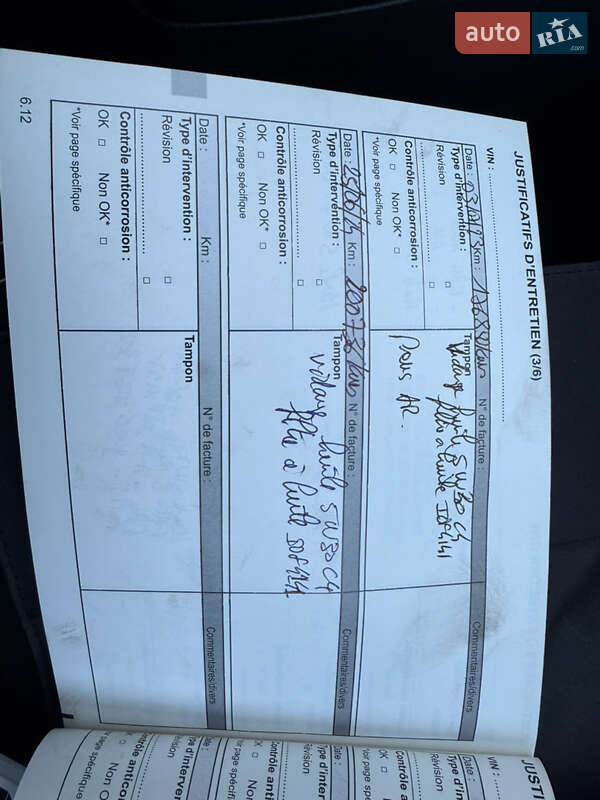 auto
RIA
.com
JUSTIFICATIFS D'ENTRETIEN (3/6)
VIN :
Date : Km : N° de facture : Commentaires/divers
Type d'intervention : Tampon
Révision □ vidange huile 5W30 C4
□ filtre à huile
Contrôle anticorrosion : Pneus AR.
OK □ Non OK* □
*Voir page spécifique
Date : 25/06/14 Km : 200736 km N° de facture : Commentaires/divers
Type d'intervention : Tampon
Révision □ vidange huile 5W30 C4
□ filtre à huile
Contrôle anticorrosion :
OK □ Non OK* □
*Voir page spécifique
Date : Km : N° de facture : Commentaires/divers
Type d'intervention : Tampon
Révision □
□
Contrôle anticorrosion :
OK □ Non OK* □
*Voir page spécifique
6.12
JUSTI
VIN :
Date :
Type d'inter
Révision
Contrôle
OK □
*Voir pa
Date :
Type d'inte
Révision
Contrôle anti
Non
*Voir page
Date :
Type d'interve
Révision
Contrôle anticor
Non O
page spécifique